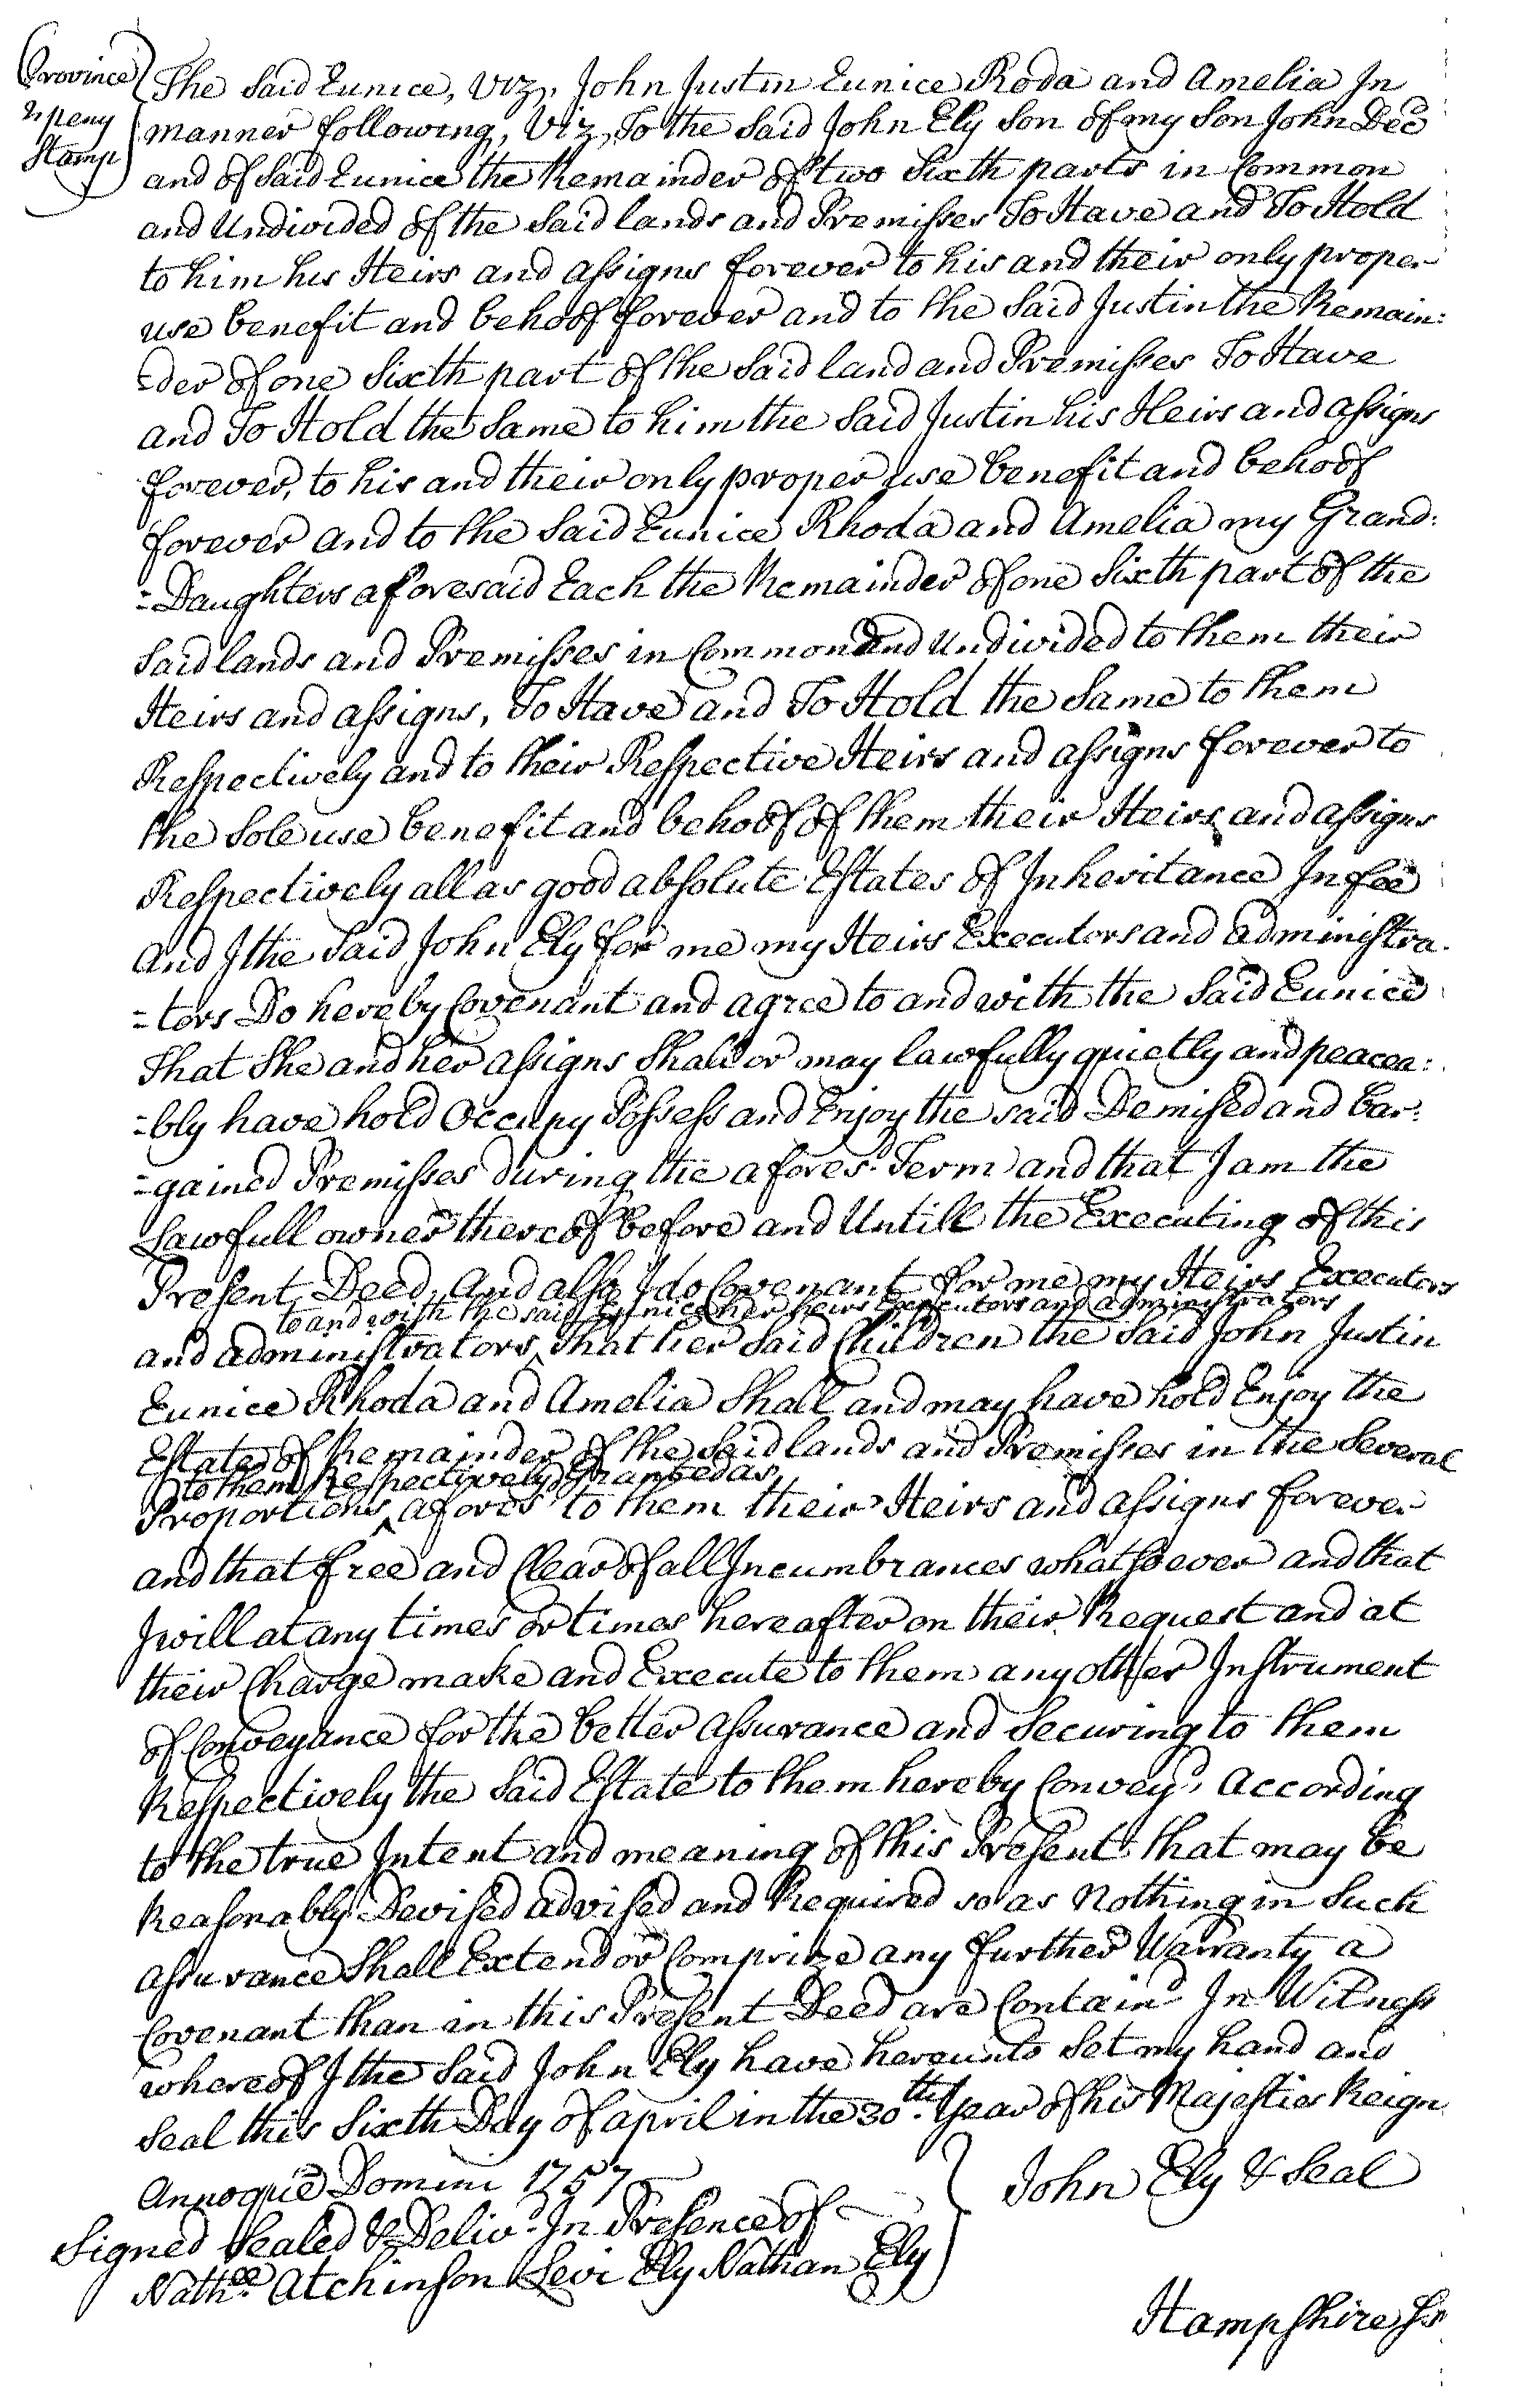 Province
2 peny
Stamp
The Said Eunice, Viz, John Justin Eunice Roda and Amelia In
manner following, Viz, To the Said John Ely Son of my Son John Decd
and of Said Eunice the Remainder of two Sixth parts in Common
and Undivided of the Said lands and Premisses To Have and To Hold
to him his Heirs and assigns forever to his and their only proper
use benefit and behoof forever and to the Said Justin the Remain:
-der of one Sixth part of the Said land and Premisses To Have
and To Hold the Same to him the Said Justin his Heirs and assigns
forever, to his and their only proper use benefit and behoof
forever and to the Said Eunice Rhoda and Amelia my Grand:
=Daughters aforesaid Each the Remainder of one Sixth part of the
Said lands and Premisses in Common and Undivided to them their
Heirs and assigns, To Have and To Hold the Same to them
Respectively and to their Respective Heirs and assigns forever to
the Sole use benefit and behoof of them their Heirs and assigns
Respectively all as good absolute Estates of Inheritance In fee
And I the Said John Ely for me my Heirs Executors and administra.
=tors Do hereby Covenant and agree to and with the Said Eunice
That She and her assigns Shall or may lawfully quietly and peacea:
=bly have hold Occupy Possess and Enjoy the said Demised and bar:
=gained Premisses during the afores.d Term and that I am the
Lawfull owner thereof before and Untill the Executing of this
Present Deed, And also I do Covenant for me my Heirs Executors
to and with the said Eunice her heirs Executors and administrators
and administrators, ^ that her Said Children the Said John Justin
Eunice Rhoda and Amelia Shall and may have hold Enjoy the
Estates of Remainder of the Said lands and Premisses in the Several
to them Respectively Granted as
Proportions ^ afores.d to them their Heirs and assigns forever
and that free and Clear of all Incumbrances whatsoever and that
I will at any times or times hereafter on their Request and at
their Charge make and Execute to them any other Instrument
of Conveyance for the better assurance and Securing to them
Respectively the Said Estate to them hereby Convey.d According
to the true Intent and meaning of this Present that may be
Reasonably Devised advised and Required so as Nothing in Such
assurance Shall Extend or Comprize any further Warranty a
Covenant than in this Present Deed are Contain.d In Witness
whereof I the Said John Ely have hereunto Set my hand and
Seal this Sixth Day of april in the 30.th Year of his Majesties Reign
Annoque Domini 1757
John Ely & Seal
Signed Sealed & Deliv.d In Presence of
Nath.ll Atchinson Levi Ely Nathan Ely
Hampshire ss